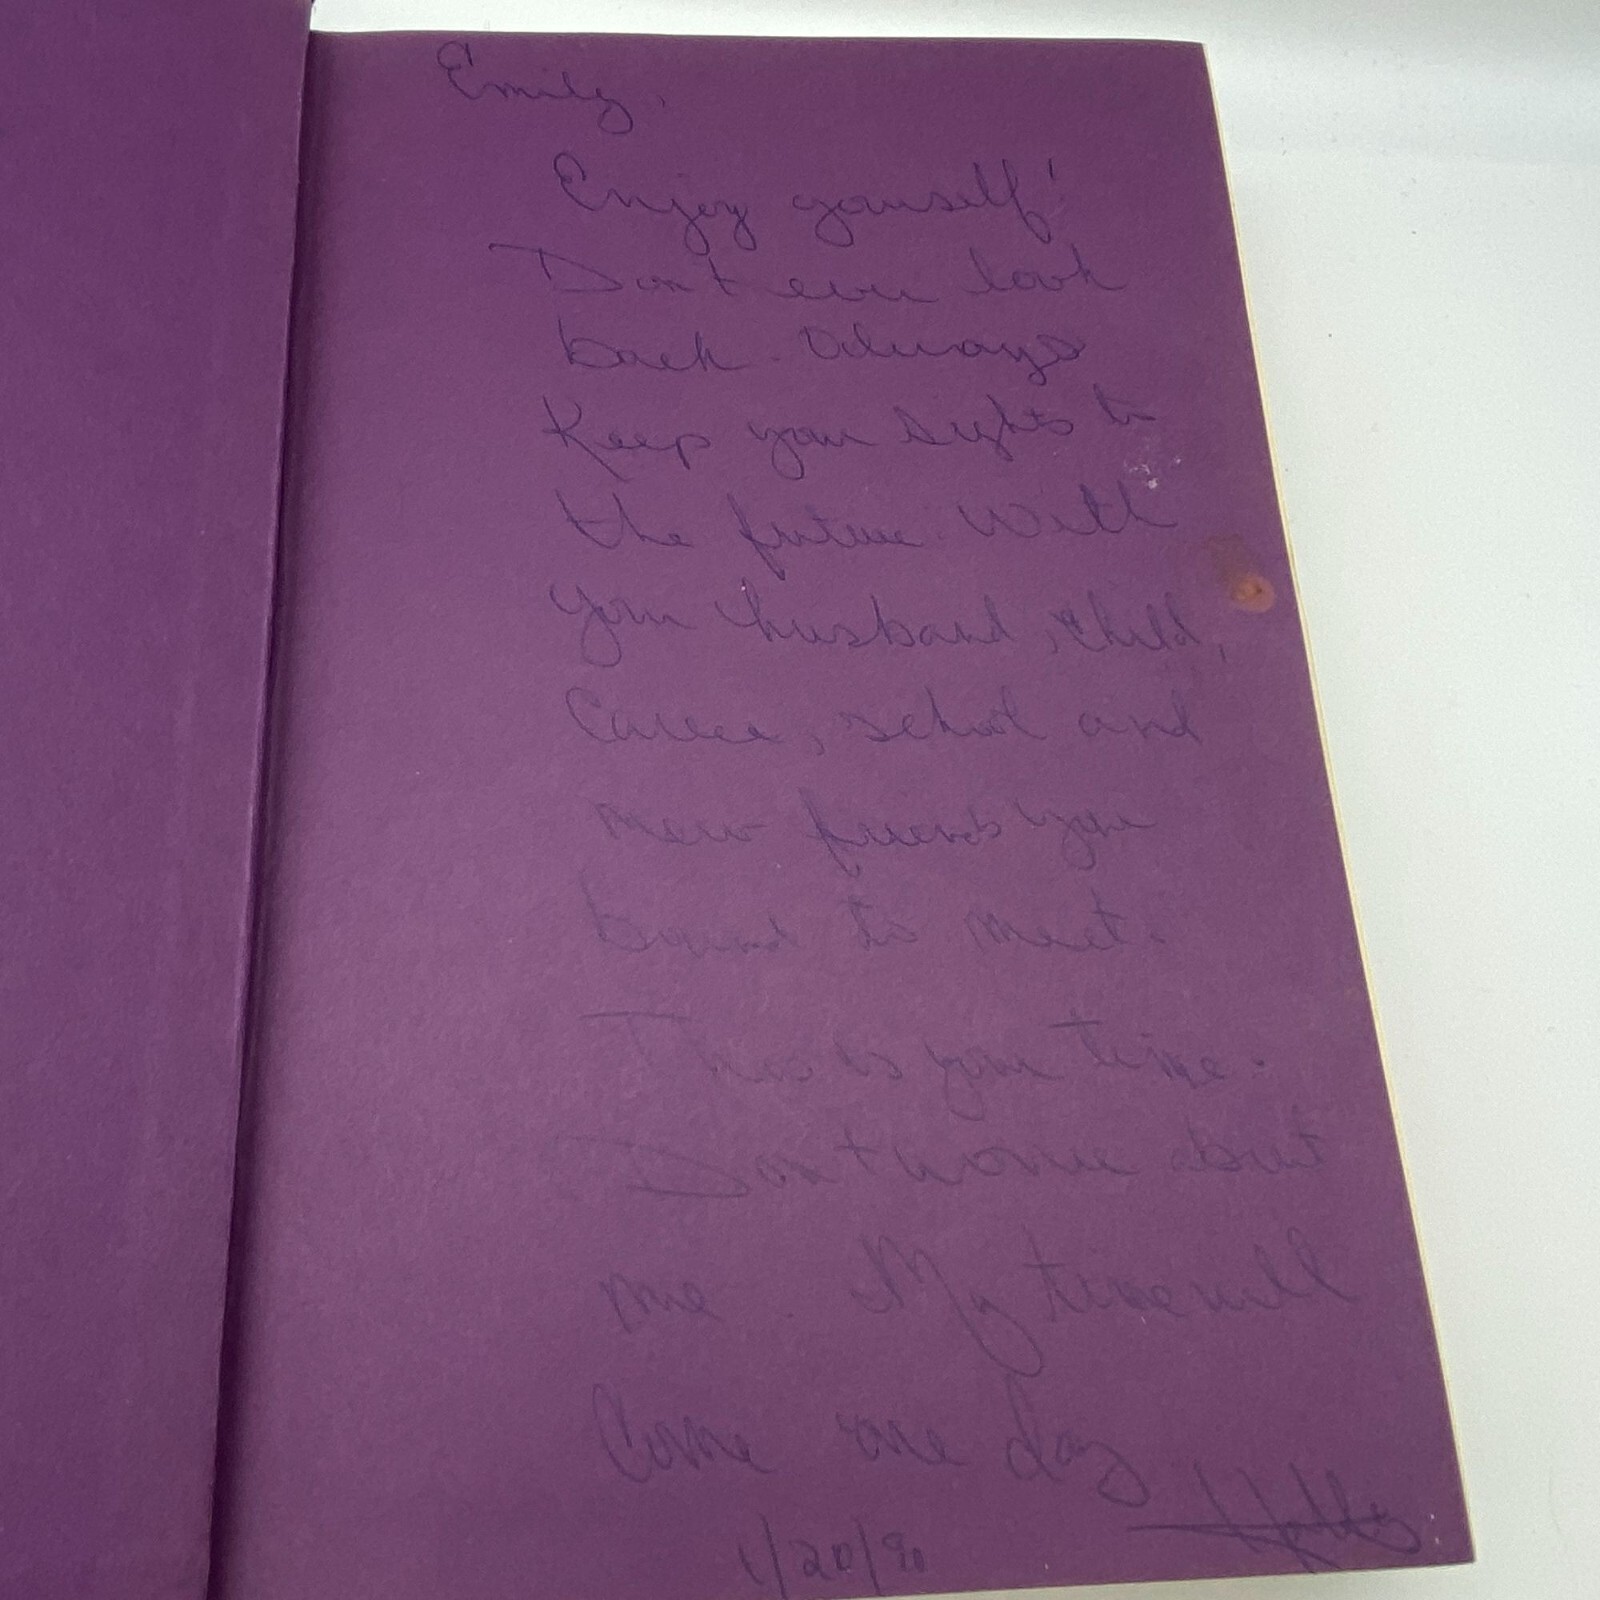 Emily,
Enjoy yourself!
Don't ever look
back. Always
Keep your sights to
the future. With
your husband, child,
Career, school and
new friends your
bound to meet.
This is your time.
Don't worrie about
me. My time will
Come one day
Holly
1/20/90